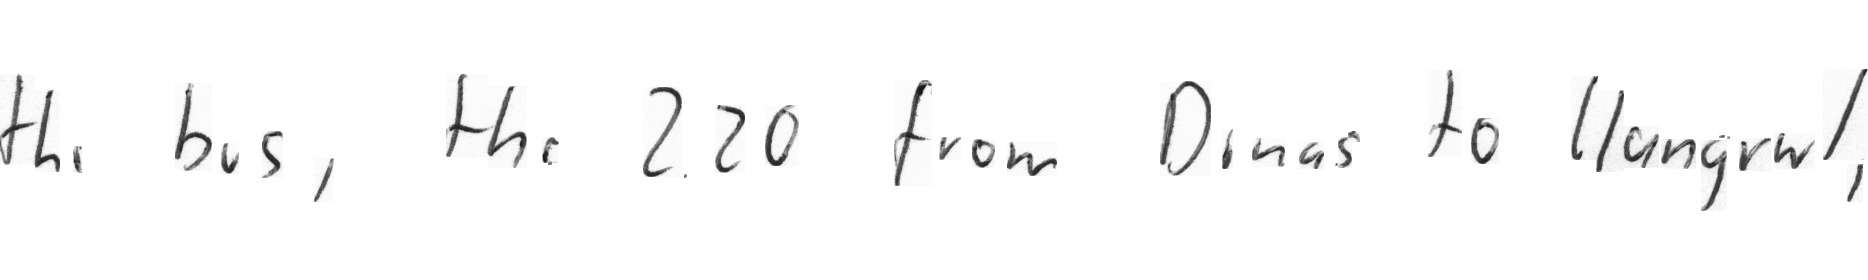 the bus, the 2.20 from Dinas to Llangrwl,